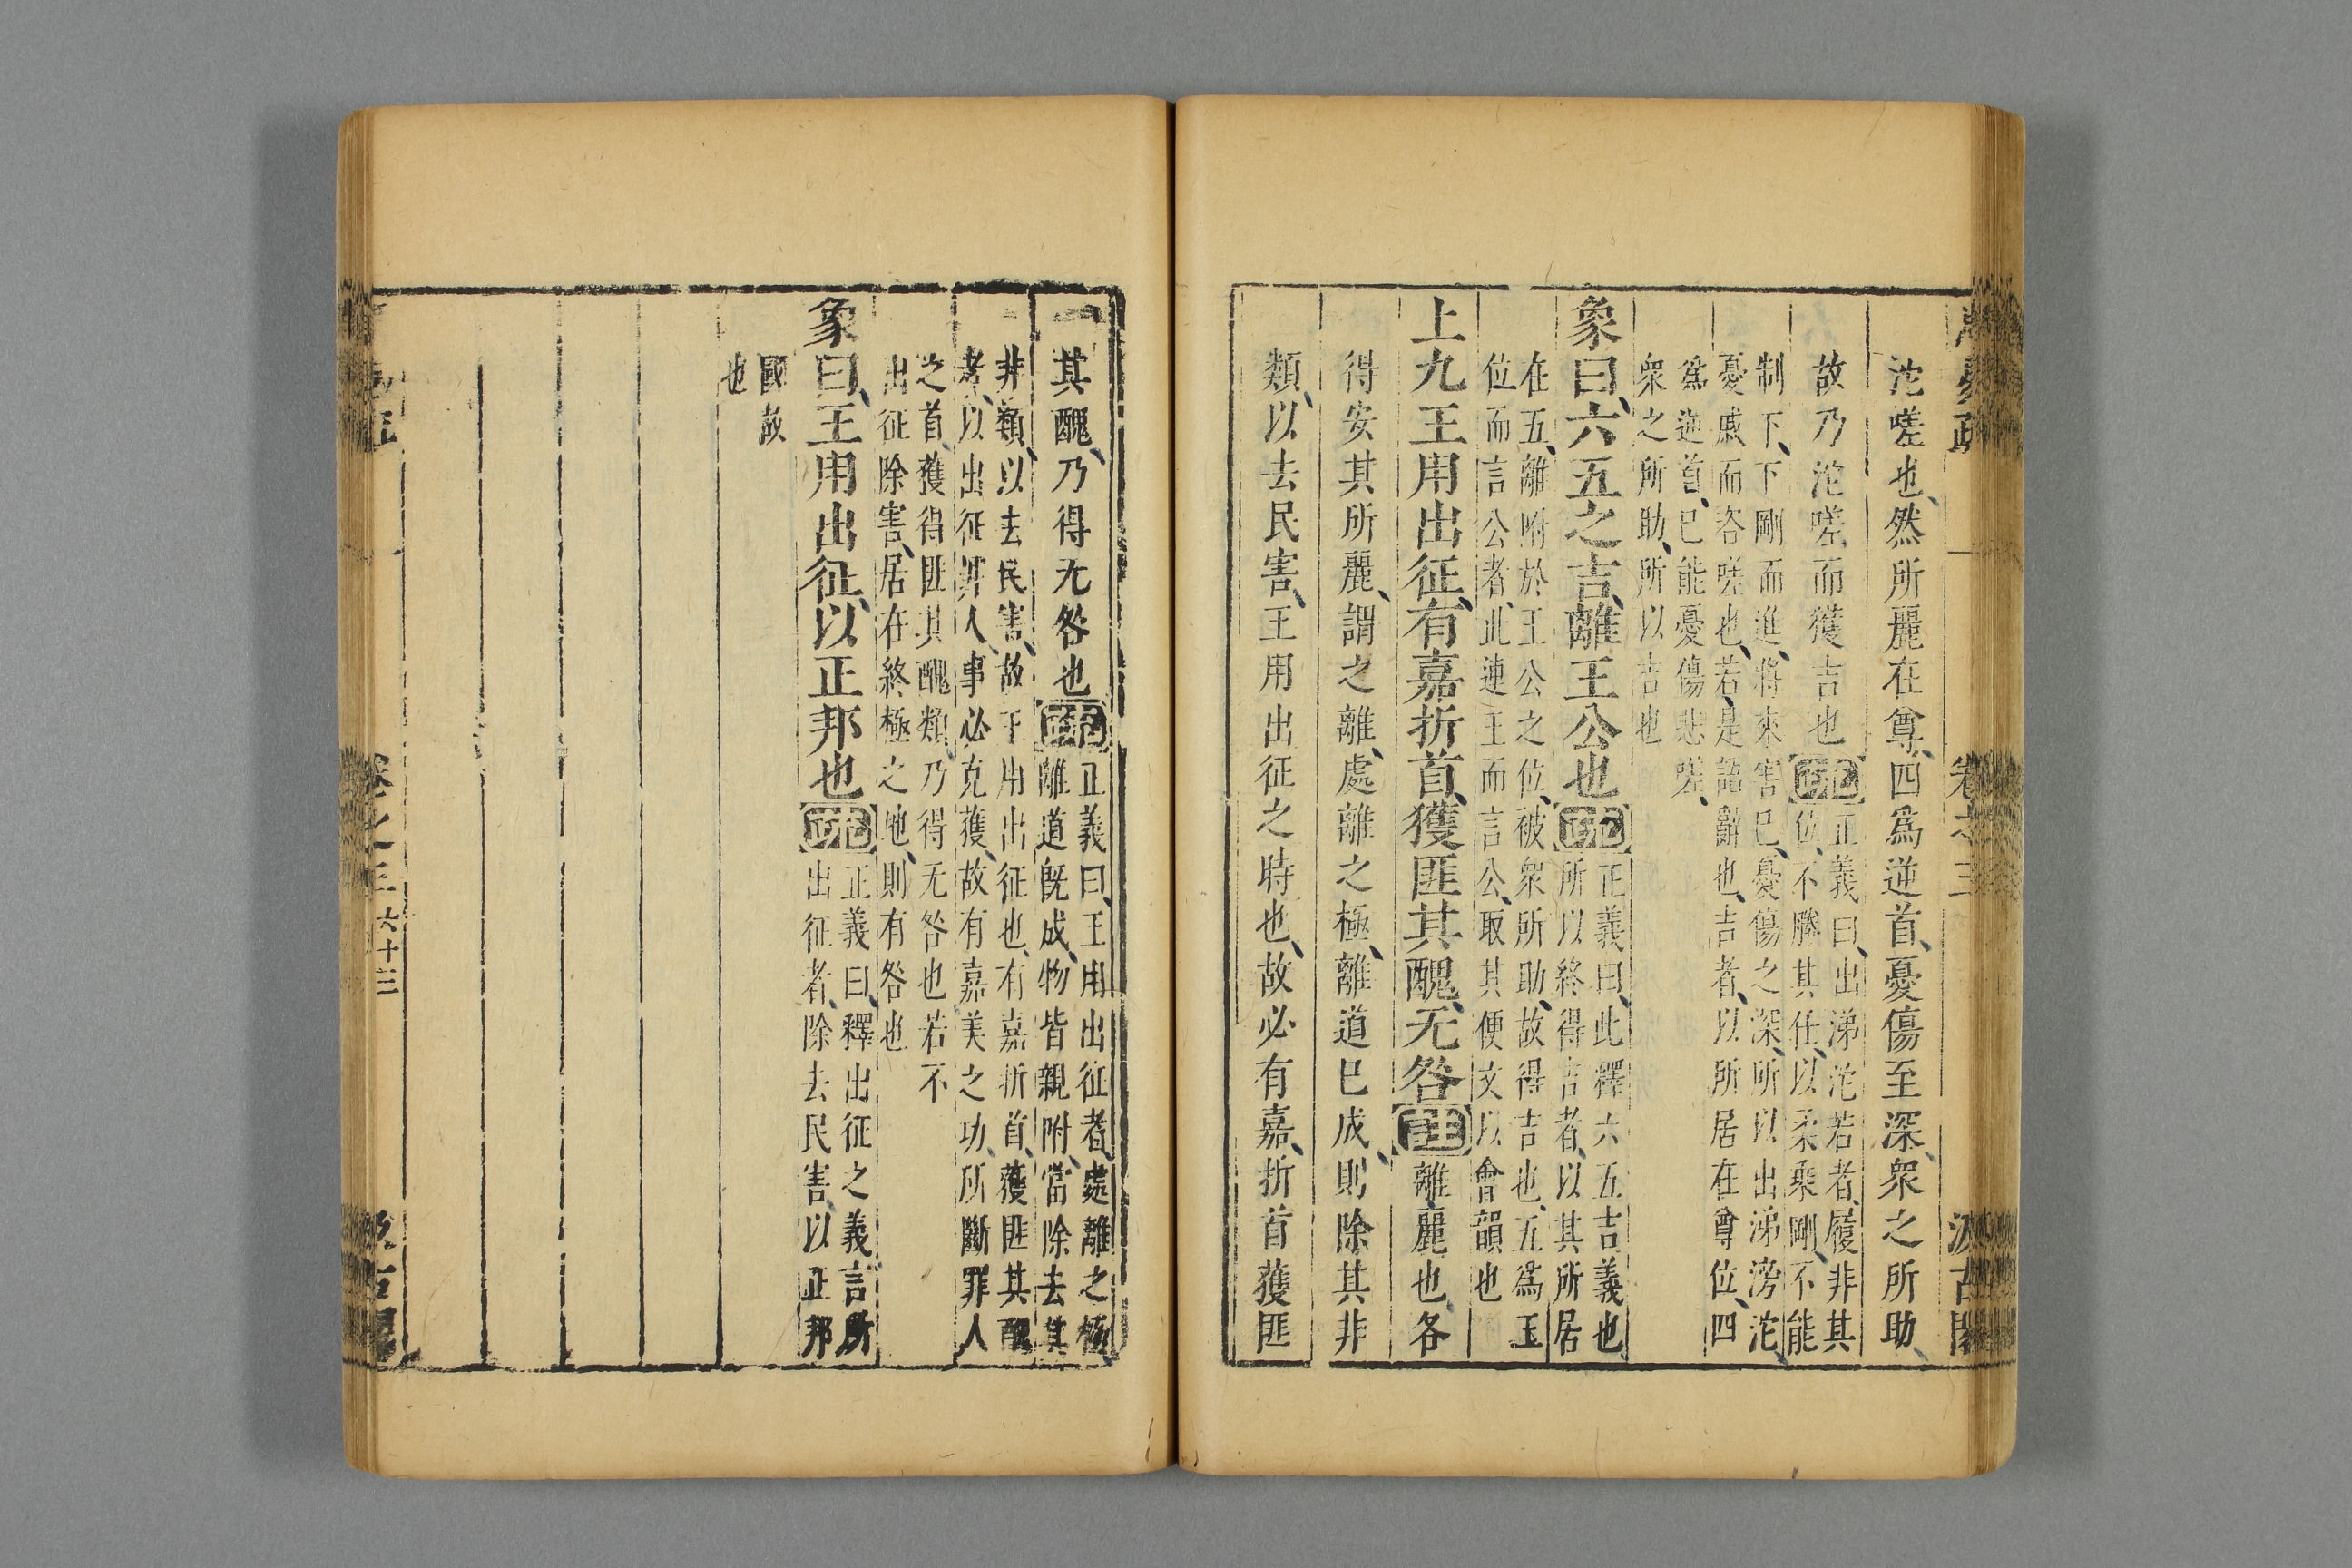 周易疏 卷之三 汲古閣
沱嗟也、然所麗在尊、四爲逆首、憂傷至深、衆之所助、
故乃沱嗟而獲吉也疏正義曰、出涕沱若者、履非其
位、不勝其任、以柔乘剛、不能
制下、下剛而進、將來害巳、憂傷之深、所以出涕滂沱、
憂戚而咨嗟也、若、是語辭也、吉者、以所居在尊位、四
爲逆首、巳能憂傷悲嗟、
衆之所助、所以吉也
象曰、六五之吉、離王公也疏正義曰、此釋六五吉義也
所以終得吉者、以其所居
在五、離附於王公之位、被衆所助、故得吉也、五爲王
位而言公者、此連王而言公、取其便文以會韻也
上九王用出征、有嘉折首、獲匪其醜、无咎註離麗也、各
得安其所麗、謂之離、處離之極、離道巳成、則除其非
類、以去民害、王用出征之時也、故必有嘉、折首獲匪
其醜、乃得无咎也疏正義曰、王用出征者、處離之極、
離道旣成、物皆親附、當除去其
非類、以去民害、故王用出征也、有嘉折首、獲匪其醜
者、以出征罪人、事必克獲、故有嘉美之功、所斷罪人
之首、獲得匪其醜類、乃得无咎也若不
出征除害、居在終極之地、則有咎也
象曰、王用出征、以正邦也疏正義曰、釋出征之義、言所
出征者、除去民害、以正邦
國故
也
卷之三 六十三 汲古閣